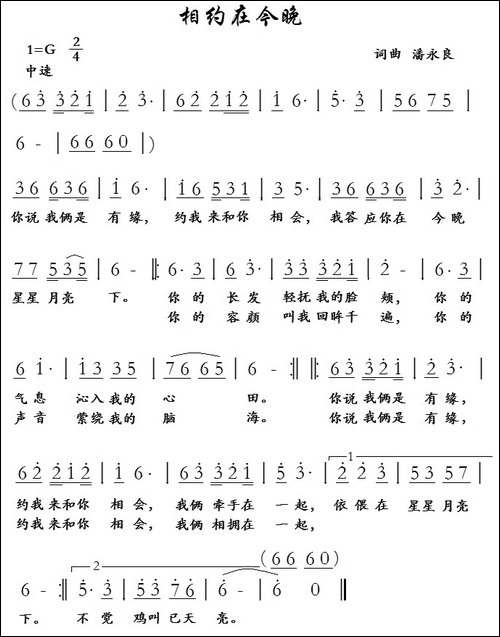 相约在今晚
1=G 2/4 词曲 潘永良
中速
(6 3̇ 3̇ 2̇ 1̇ | 2̇ 3̇· | 6 2̇ 2̇ 1̇ 2̇ | 1̇ 6· | 5̇· 3̇ | 5 6 7 5 |
6 - | 6 6 6 0 |)
3 6 6 3 6 | 1̇ 6· | 1̇ 6 5 3 1 | 3 5· | 3 6 6 3 6 | 3̇ 2̇· |
你说 我俩是 有缘， 约我 来和你 相会， 我答 应你在 今晚
7 7 5 3̇ 5 | 6 - |: 6· 3̇ | 6 3̇· | 3̇ 3̇ 3̇ 2̇ 1̇ | 2̇ - | 6· 3̇ |
星星 月亮 下。 你的 长发 轻抚 我的脸 颊， 你的
你的 容颜 叫我 回眸千 遍， 你的
6 1̇· | 1̇ 3 3 5 | 7 6 6 5 | 6 - :| |: 6 3̇ 3̇ 2̇ 1̇ | 2̇ 3̇· |
气息 沁入我的 心 田。 你说 我俩是 有缘，
声音 萦绕我的 脑 海。 你说 我俩是 有缘，
6 2̇ 2̇ 1̇ 2̇ | 1̇ 6· | 6 3̇ 3̇ 2̇ 1̇ | 5 3̇· | 1 2̇ 2̇ 3̇ | 5 3 5 7 |
约我 来和你 相会， 我俩 牵手在 一起， 依偎在 星星月亮
约我 来和你 相会， 我俩 相拥在 一起，
(6 6 6 0)
6 - :| 2 5̇· 3̇ | 5 3̇ 7 6 | 6̇ - | 6 0 ‖
下。 不觉 鸡叫已天 亮。